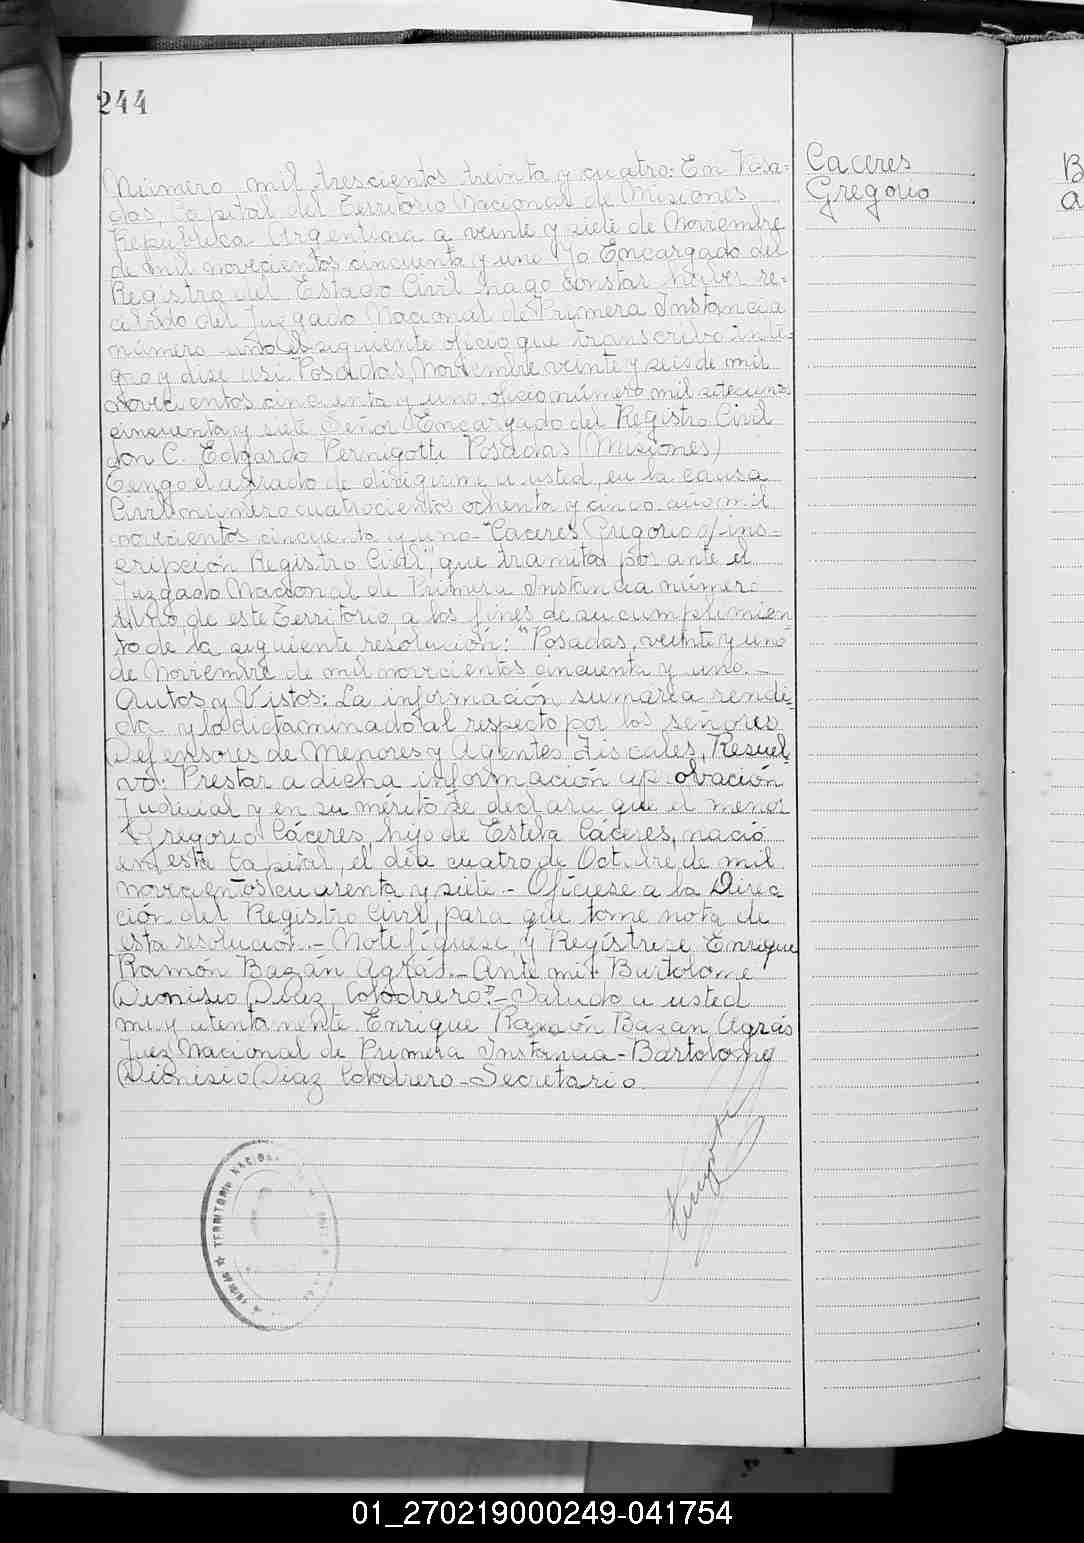 244
Caceres
Gregorio
Número mil trescientos treinta y cuatro: En Posa-
das, Capital del Territorio Nacional de Misiones
República Argentina a veinte y siete de Noviembre
de mil novecientos cincuenta y uno Yo Encargado del
Registro del Estado Civil hago constar haber re-
cibido del Juzgado Nacional de Primera Instancia
número uno el siguiente oficio que transcribo inte-
gro y dice asi: Posadas, Noviembre veinte y seis de mil
novecientos cincuenta y uno, oficio número mil setecientos
cincuenta y siete Señor Encargado del Registro Civil
don C. Edgardo Pernigotti Posadas (Misiones)
Tengo el agrado de dirigirme a usted, en la causa
Civil número cuatrocientos ochenta y cinco año mil
novecientos cincuenta y uno - "Caceres Gregorio s/ ins-
cripción Registro Civil", que tramita por ante el
Juzgado Nacional de Primera Instancia número
Uno de este Territorio, a los fines de su cumplimien-
to de la siguiente resolución: "Posadas, veinte y uno
de Noviembre de mil novecientos cincuenta y uno.
Autos y Vistos: La información sumaria rendi-
da y lo dictaminado al respecto por los señores
Defensores de Menores y Agentes Fiscales, Resuel-
vo: Prestar a dicha información aprobación
Judicial y en su mérito se declara que el menor
Gregorio Cáceres, hijo de Estela Cáceres, nació
en esta Capital, el día cuatro de Octubre de mil
novecientos cuarenta y siete.- Ofíciese a la Direc
ción del Registro Civil, para que tome nota de
esta resolucion.- Notifíquese y Regístrese Enrique
Ramón Bazán Agrás.- Ante mi: Bartolome
Dionisio Diaz Colodrero".- Saludo a usted
muy atentamente. Enrique Ramón Bazan Agrás
Juez Nacional de Primera Instancia - Bartolome
Dionisio Diaz Colodrero - Secretario
TERRITORIO NACIONAL
01_270219000249-041754